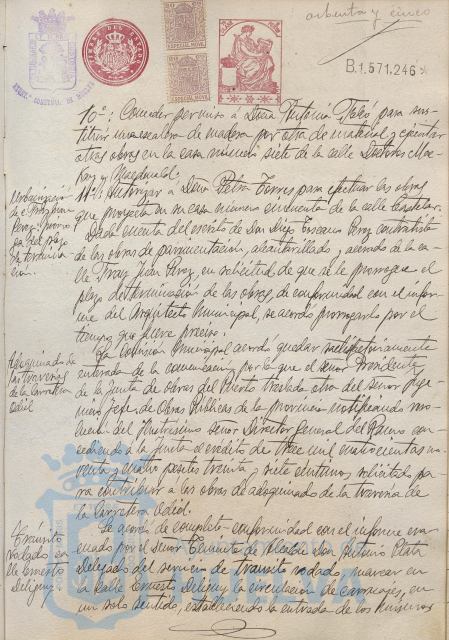 ochenta y cinco
B.1.571.246
ESPECIAL MOVIL
ESPECIAL MOVIL
10º: Conceder permiso á Doña Antonia para sus-
tituir una escalera de madera por otra de material y ejecutar
otras obras en la casa número siete de la calle Doctores Mac-
kay y Macdonald.
11º: Autorizar á Doña Petra Torres para efectuar las obras
que proyecta en su casa número cincuenta de la calle Castelar.
Urbanización
Dada cuenta del escrito de Don Diego Toscano Perez contratista
de las obras de pavimentación, alcantarillado y acerado de la ca-
lle Fray Juan Perez, en solicitud de que se le prorrogue el
plazo de terminación de las obras, de conformidad con el infor-
me del Arquitecto Municipal, se acordó prorrogarlo por el
tiempo que fuere preciso.
Adoquinado de
las travesias
de la Carretera
Odiel
La Comisión Municipal acordó quedar satisfactoriamente
enterada de la comunicación por la que el señor Presidente
de la Junta de obras del Puerto traslada otra del señor Inge-
niero Jefe de Obras Públicas de la provincia notificando
del Ilustrisimo señor Director General del Ramo con-
cediendo á la Junta el crédito de trece mil cuatrocientas no-
venta y cuatro pesetas treinta y siete centimos, solicitado pa-
ra contribuir á las obras de adoquinado de la travesia de
la Carretera Odiel.
Tránsito
rodado en
calle Ernesto
Deligny
Se acordó de completa conformidad con el informe eva-
cuado por el señor Teniente de Alcalde Don Arturo Plata
Delegado del servicio de tránsito rodado, marcar en
la calle Ernesto Deligny la circulación de carruajes, en
un solo sentido, estableciendo la entrada de los mismos